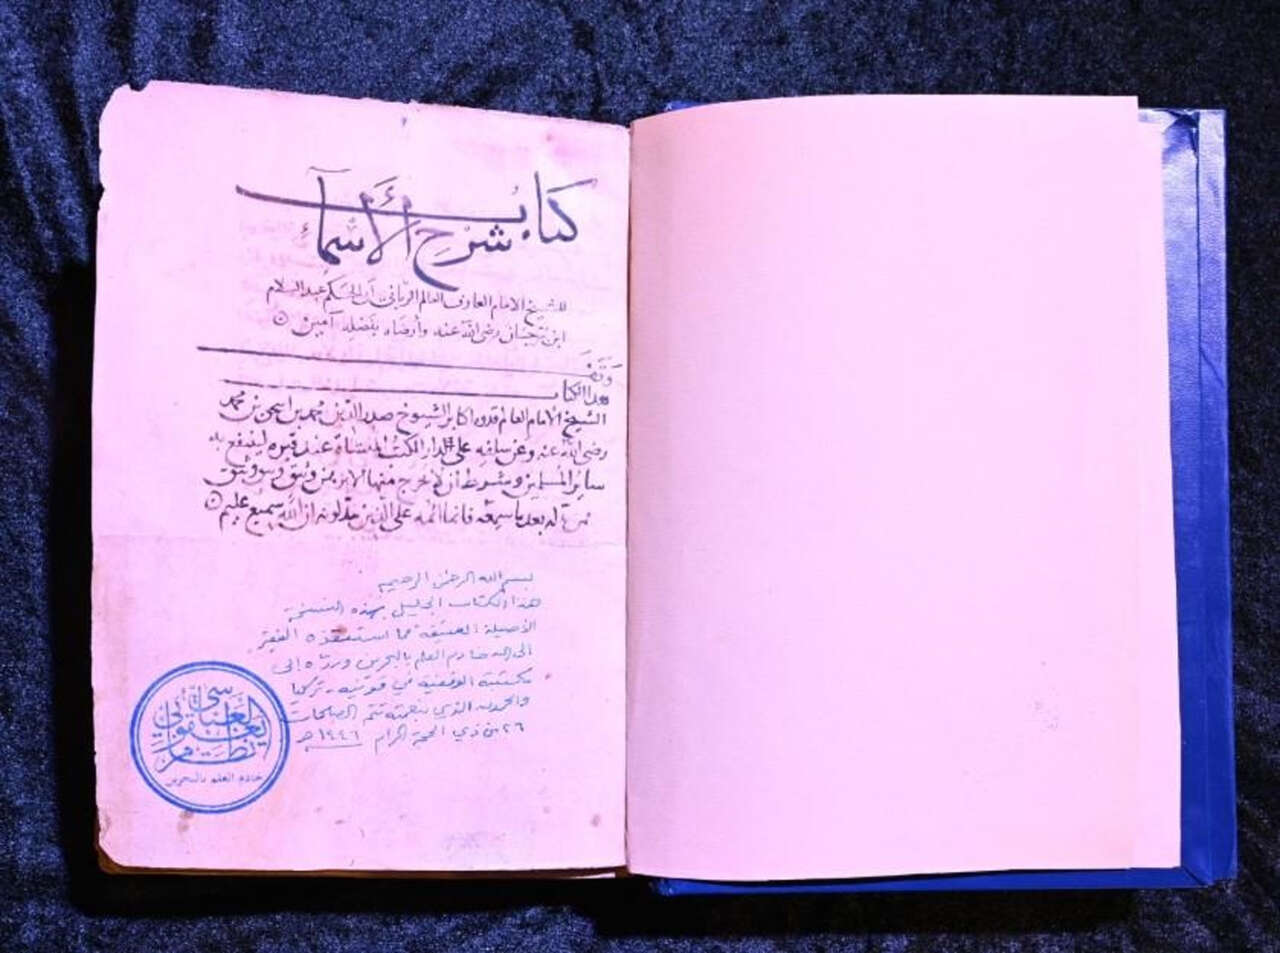 كتاب
شرح الأسماء
للشيخ الامام العارف العالم الرباني ابي الحكم عبد السلام
ابن برجان رضى الله عنه وأرضاه بفضله آمين
وقف
هذا الكتاب
الشيخ الامام العالم قدوة اكابر الشيوخ صدر الدين محمد بن اسحق بن محمد
رضى الله عنه وعن سلفه على دار الكتب المنشاة عند قبره لينتفع به
ساير المسلمين وشرط ان لا يخرج منها الا برهن وثيق
فمن بدله بعد ما سمعه فانما اثمه على الذين يبدلونه ان الله سميع عليم
بسم الله الرحمن الرحيم
هذا الكتاب الجليل بهذه النسخة
الأصيلة العتيقة مما استنقذه الفقير
إلى الله خادم العلم بالبحرين وردّه إلى
مكتبته الوقفية في قونية - تركيا
والحمد لله الذي بنعمته تتم الصالحات
٢٦ من ذي الحجة الحرام ١٤٤٦ هـ
نظام يعقوبي العباسي
خادم العلم بالبحرين